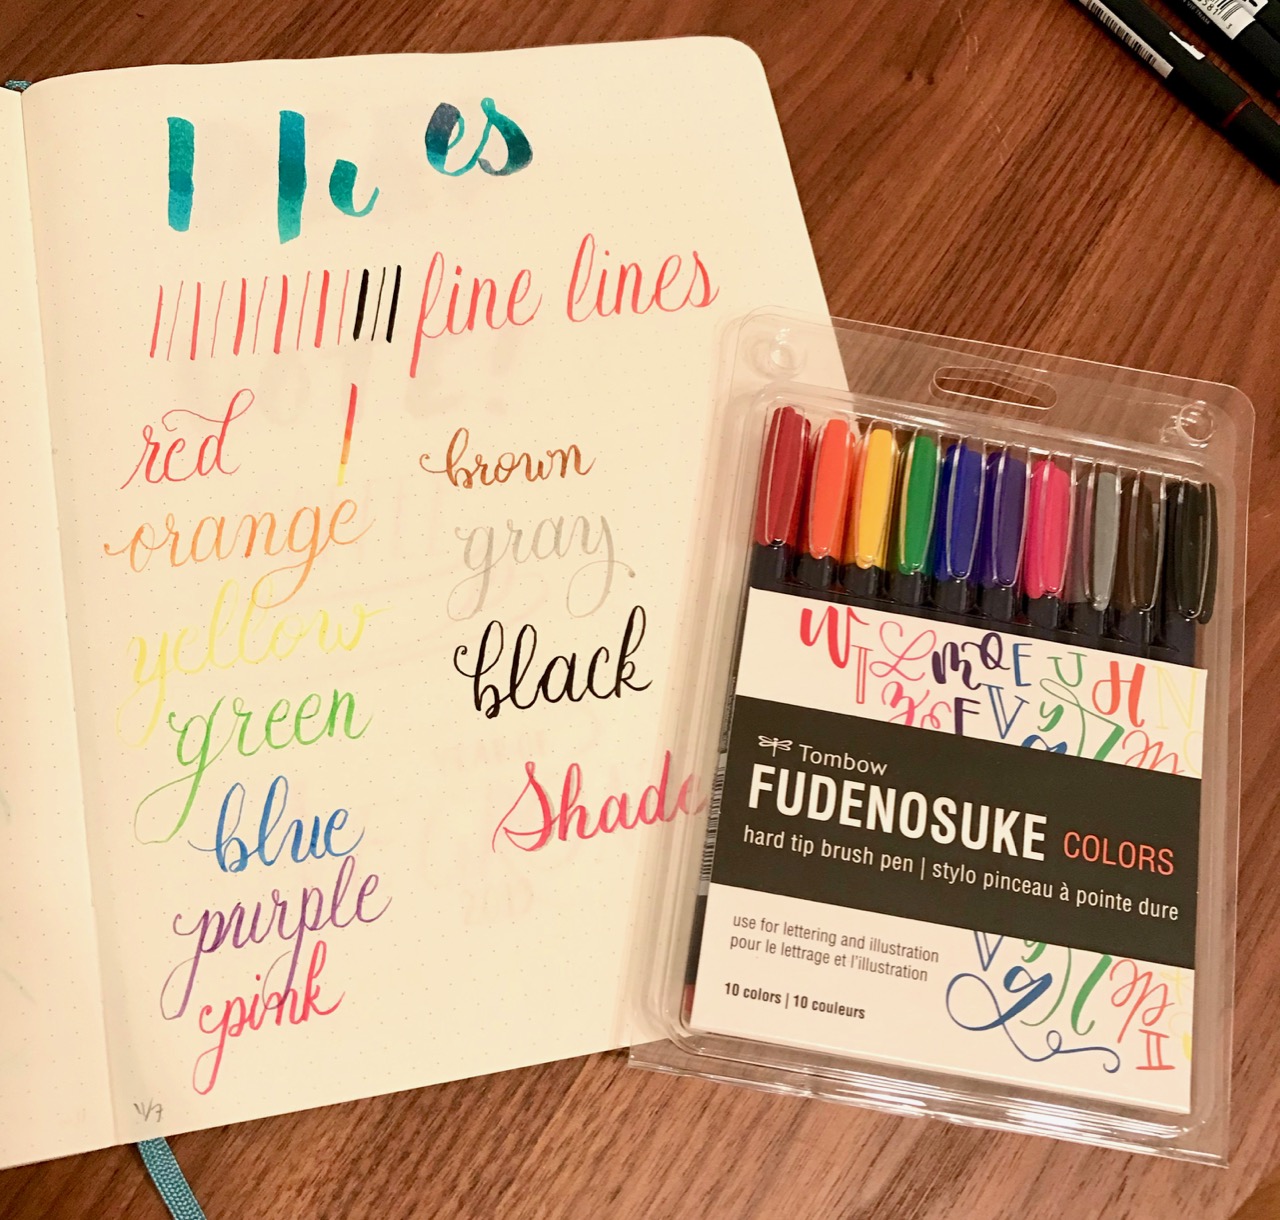 es
fine lines
red
orange
yellow
green
blue
purple
pink
brown
gray
black
Shade
Tombow
FUDENOSUKE COLORS
hard tip brush pen | stylo pinceau à pointe dure
use for lettering and illustration
pour le lettrage et l'illustration
10 colors | 10 couleurs